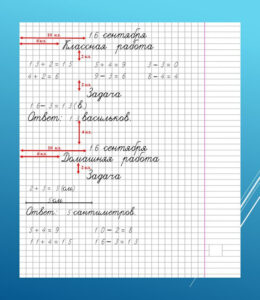 10 кл.
16 сентября
8 кл.
Классная работа
2 кл.
13+2=15 5+4=9 3-3=0
4+2=6 9-3=6 8-4=4
2 кл.
Задача
16-3=13(в.)
Ответ: 13 васильков.
4 кл.
10 кл.
16 сентября
8 кл.
Домашняя работа
2 кл.
Задача
2+3=5(см)
5см
Ответ: 5 сантиметров.
5+4=9 10-2=8
11+4=15 16-3=13